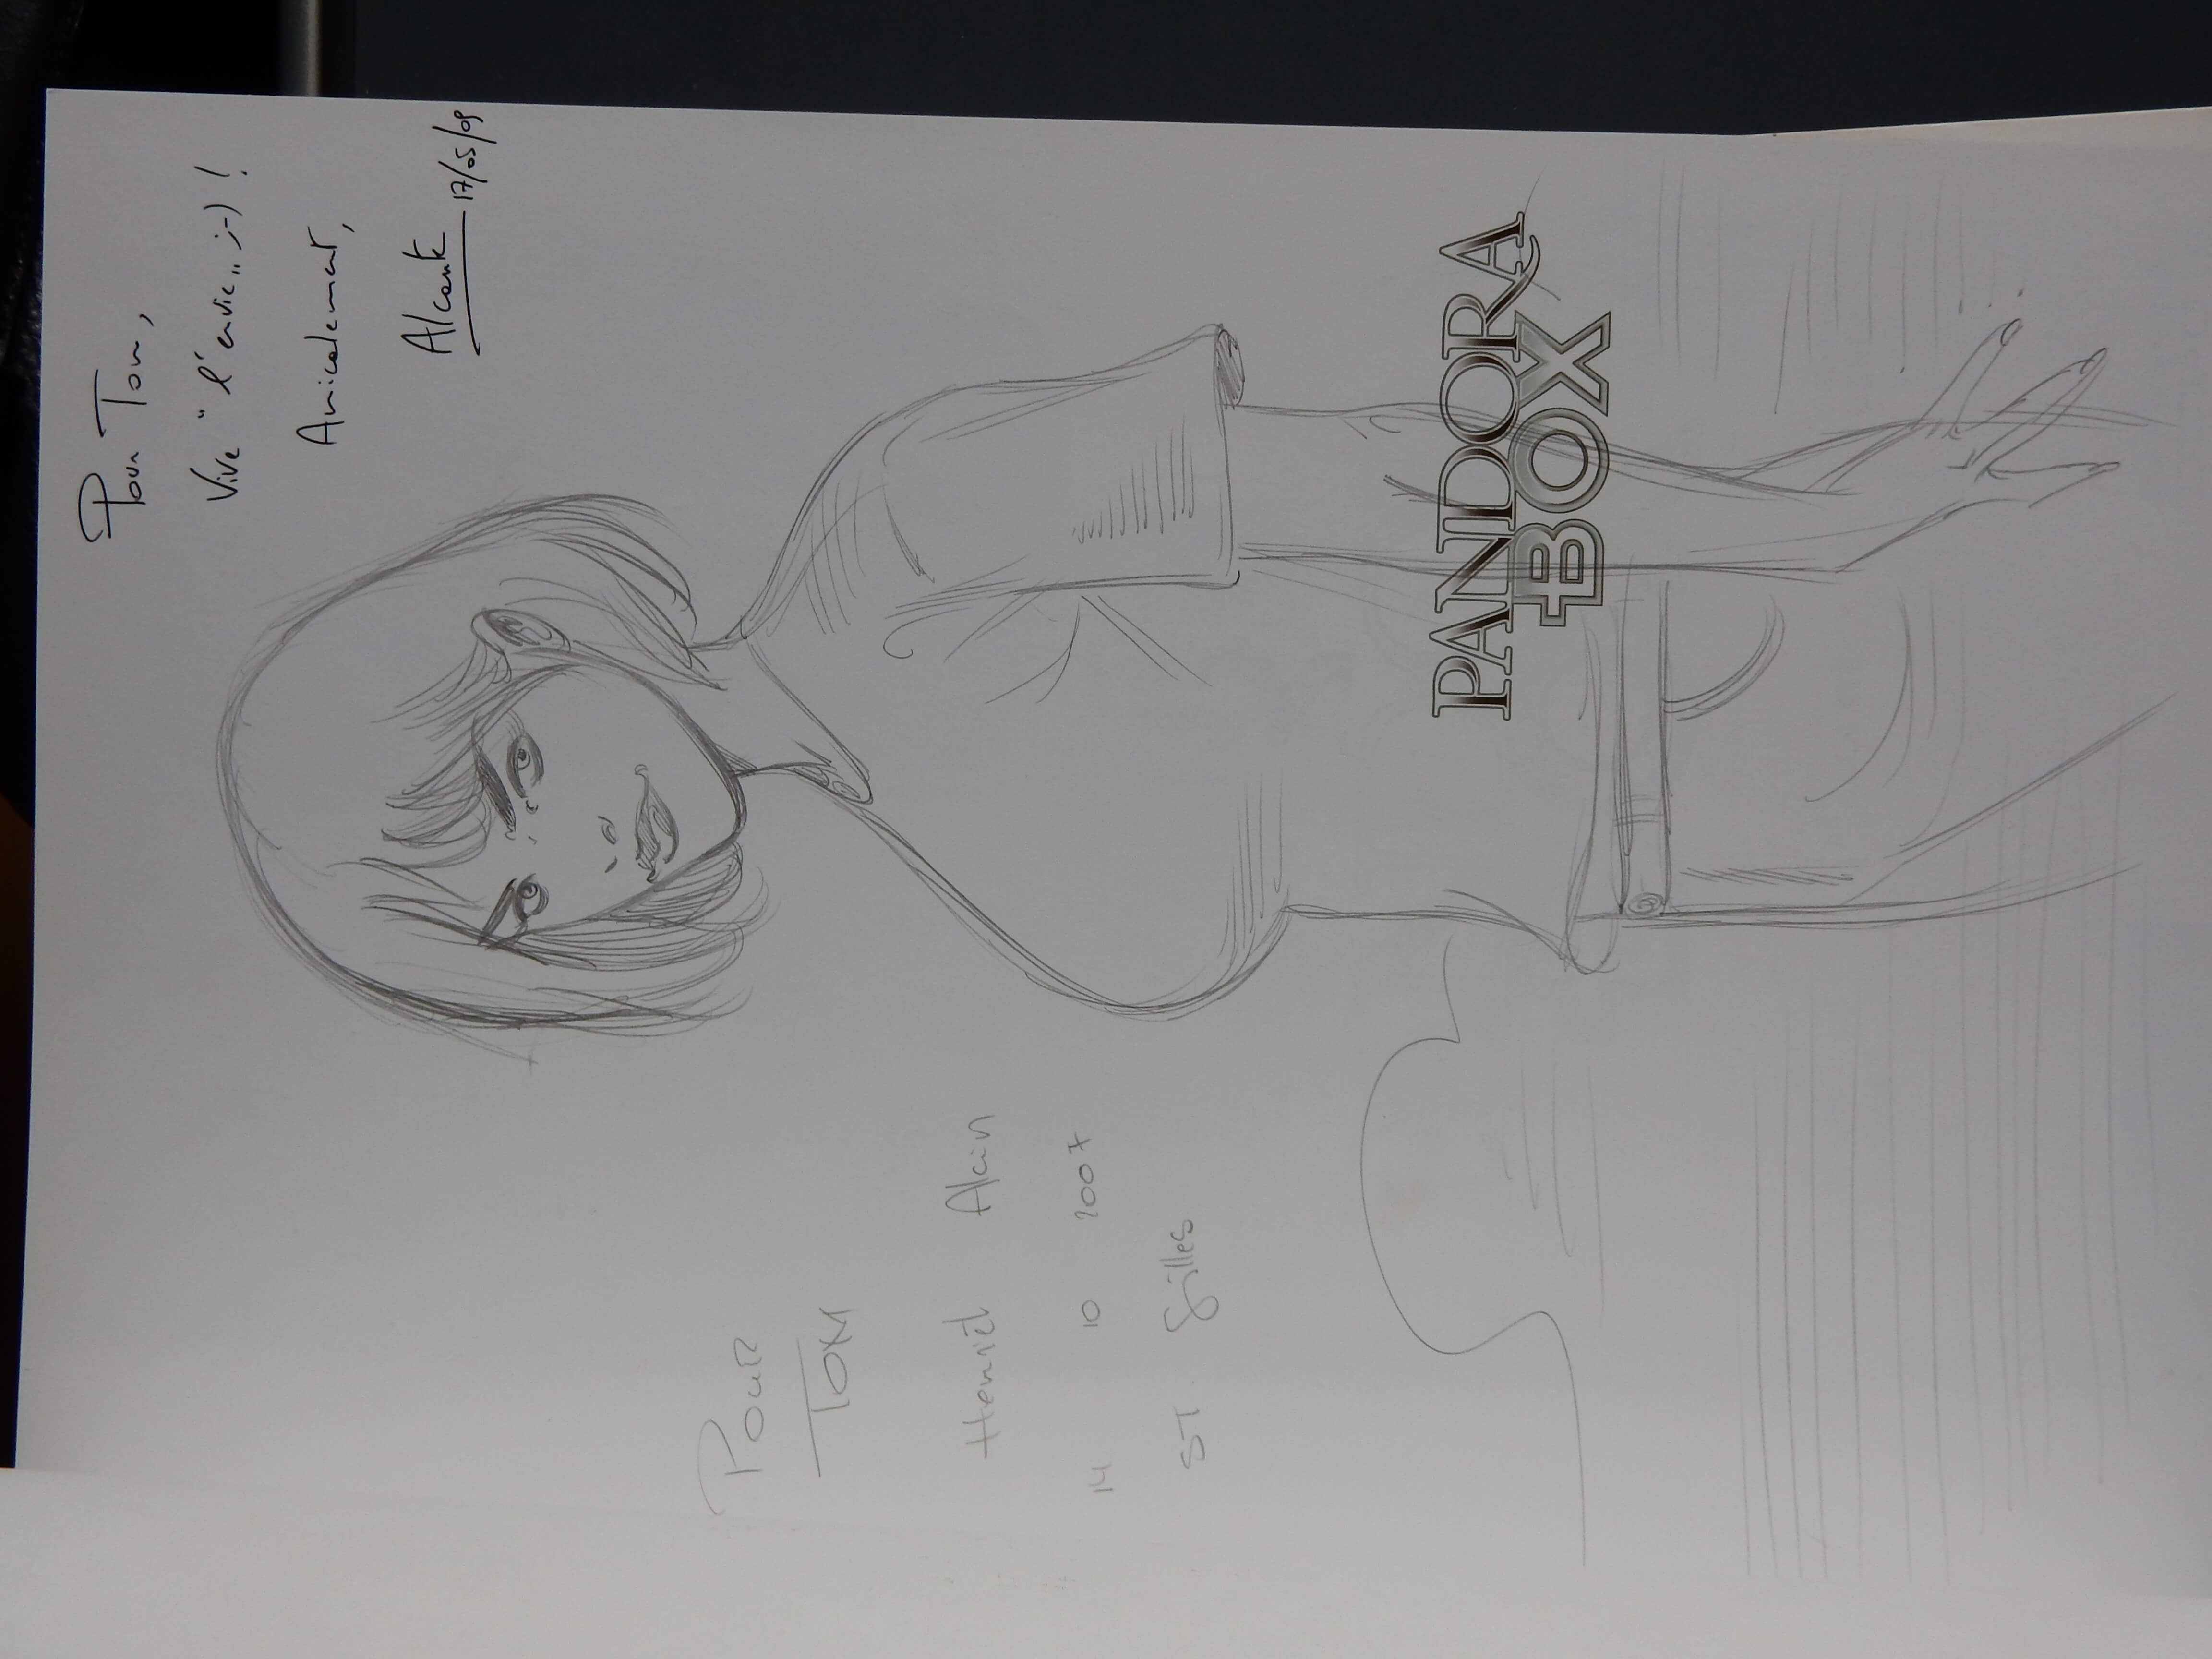 Pour Tom,
Vive "l'envie" ;-) !
Amicalement,
Alcante 17/05/09
POUR
TOM
Henriet Alain
14 10 2007
ST Gilles
PANDORA
BOX